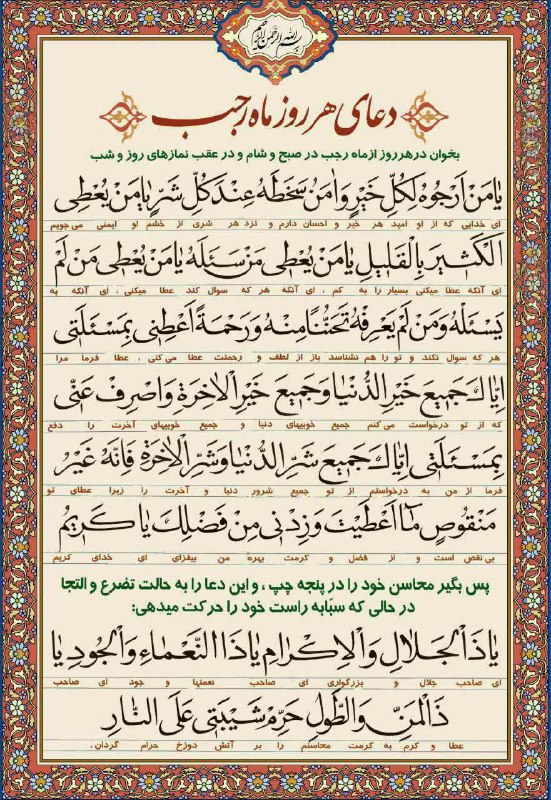 بسم الله الرحمن الرحیم
دعای هر روز ماه رجب
بخوان در هر روز از ماه رجب در صبح و شام و در عقب نمازهای روز و شب
یٰا مَنْ اَرْجُوهُ لِکُلِّ خَیْرٍ وَاٰمَنُ سَخَطَهُ عِنْدَ کُلِّ شَرٍّ یٰا مَنْ یُعْطِی
ای خدایی که از او امید هر خیر و احسان دارم و نزد هر شری از خشم او ایمنی می‌جویم
الْکَثیٖرَ بِالْقَلیٖلِ یٰا مَنْ یُعْطیٖ مَنْ سَئَلَهُ یٰا مَنْ یُعْطیٖ مَنْ لَمْ
ای آنکه عطا میکنی بسیار را به کم ، ای آنکه هر که سوال کند عطا میکنی ، ای آنکه به
یَسْئَلْهُ وَمَنْ لَمْ یَعْرِفْهُ تَحَنُّنًا مِنْهُ وَرَحْمَةً اَعْطِنیٖ بِمَسْئَلَتیٖ
هر که سوال نکند و تو را هم نشناسد باز از لطف و رحمتت عطا می کنی ، عطا فرما مرا
اِیّٰاکَ جَمیٖعَ خَیْرِ الدُّنْیٰا وَجَمیٖعَ خَیْرِ الْاٰخِرَةِ وَاصْرِفْ عَنّیٖ
که از تو درخواست می کنم جمیع خوبیهای دنیا و جمیع خوبیهای آخرت را و دفع
بِمَسْئَلَتیٖ اِیّٰاکَ جَمیٖعَ شَرِّ الدُّنْیٰا وَشَرِّ الْاٰخِرَةِ فَاِنَّهُ غَیْرُ
فرما از من به درخواستم از تو جمیع شرور دنیا و آخرت را زیرا عطای تو
مَنْقُوصٍ مٰا اَعْطَیْتَ وَزِدْنیٖ مِنْ فَضْلِکَ یٰا کَریٖمُ
بی نقص است و از فضل و کرمت بهره من بیفزای ای خدای کریم
پس بگیر محاسن خود را در پنجه چپ ، و این دعا را به حالت تضرع و التجا
در حالی که سبّابه راست خود را حرکت میدهی:
یٰا ذَا الْجَلٰالِ وَالْاِکْرٰامِ یٰا ذَا النَّعْمٰاءِ وَالْجُودِ یٰا
ای صاحب جلال و بزرگواری ای صاحب نعمتها و جود ای صاحب
ذَا الْمَنِّ وَالطَّوْلِ حَرِّمْ شَیْبَتیٖ عَلَی النّٰارِ
عطا و کرم به کرمت محاسنم را بر آتش دوزخ حرام گردان.